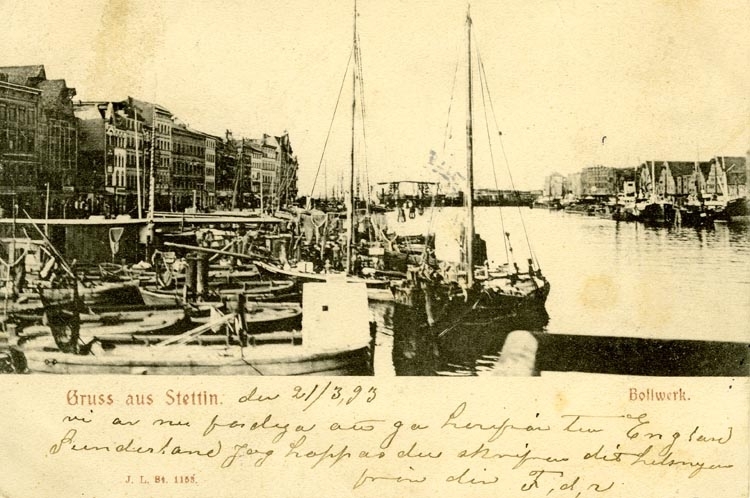 Gruss aus Stettin. den 21/3,93
Bollwerk.
vi är nu färdiga att gå herifrån till England
Sunderland Jag hoppas du skrifver dit helsningar
från din F, d, r
J. L. St. 1158.